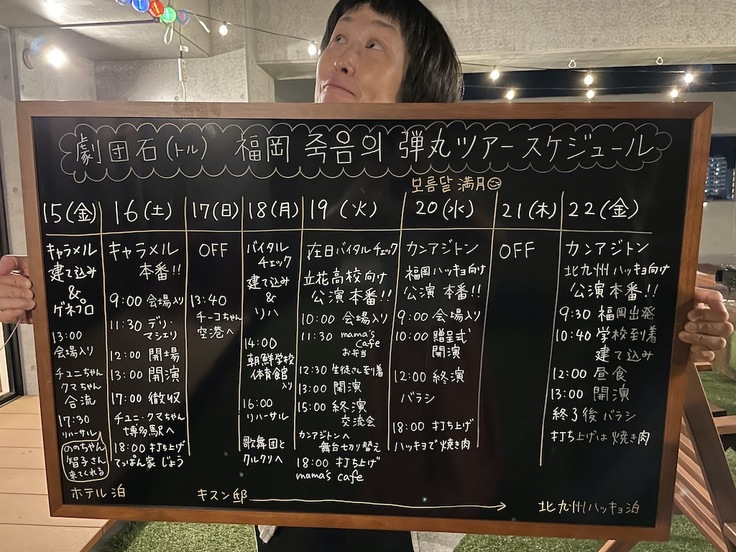 劇団石(トル) 福岡 죽음의 弾丸ツアースケジュール
보름달 満月
15(金)
キャラメル
建て込み
&
ゲネプロ
13:00
会場入り
チュニちゃん
クマちゃん
合流
17:30
リハーサル
ののちゃん
智子さん
来てくれる
16(土)
キャラメル
本番!!
9:00 会場入り
11:30 デリ・
マシェリ
12:00 開場
13:00 開演
17:00 撤収
チュニ・クマちゃん
博多駅へ
18:00 打ち上げ
てっぱん家 じょう
17(日)
OFF
13:40
チーコちゃん
空港へ
18(月)
バイタル
チェック
建て込み
&
リハ
14:00
朝鮮学校
体育館
入り
16:00
リハーサル
歌舞団と
クルクリへ
19(火)
在日バイタルチェック
立花高校向け
公演 本番!!
10:00 会場入り
11:30 mama's
Cafe
お弁当
12:30 生徒さん到着
13:00 開演
15:00 終演
交流会
カンアジトンへ
舞台切り替え
18:00 打ち上げ
mama's cafe
20(水)
カンアジトン
福岡ハッキョ向け
公演 本番!!
9:00 会場入り
10:00 贈呈式
開演
12:00 終演
バラシ
18:00 打ち上げ
ハッキョで焼き肉
21(木)
OFF
22(金)
カンアジトン
北九州ハッキョ向け
公演 本番!!
9:30 福岡出発
10:40 学校到着
建て込み
12:00 昼食
13:00 開演
終了後 バラシ
打ち上げは焼き肉
ホテル泊
キスン邸
北九州ハッキョ泊